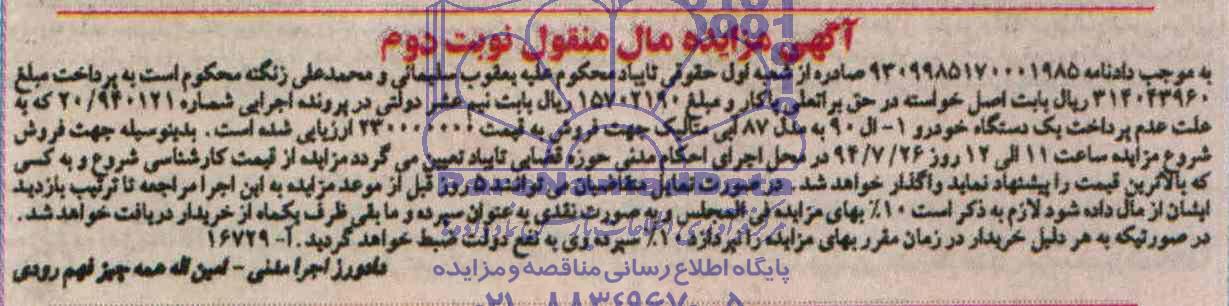 آگهی مزایده مال منقول نوبت دوم
به موجب دادنامه ۹۳۰۹۹۸۵۱۷۰۰۰۱۹۸۵ صادره از شعبه اول حقوقی تایباد محکوم علیه یعقوب سلیمانی و محمدعلی زنگنه محکوم است به پرداخت مبلغ
۳۱۴۰۴۳۹۶۰ ریال بابت اصل خواسته در حق پراتعلی بالکار و مبلغ ۱۵۷۰۲۱۹۰ ریال بابت نیم عشر دولتی در پرونده اجرایی شماره ۲۰/۹۴۰۱۲۱ که به
علت عدم پرداخت یک دستگاه خودرو ۱- ال ۹۰ به مدل ۸۷ آبی متالیک جهت فروش به قیمت ۲۳۰۰۰۰۰۰۰ ارزیابی شده است. بدینوسیله جهت فروش
شروع مزایده ساعت ۱۱ الی ۱۲ روز ۹۴/۷/۲۶ در محل اجرای احکام مدنی حوزه قضایی تایباد تعیین می گردد مزایده از قیمت کارشناسی شروع و به کسی
که بالاترین قیمت را پیشنهاد نماید واگذار خواهد شد. در صورت تمایل متقاضیان می توانند ۵ روز قبل از موعد مزایده به این اجرا مراجعه تا ترتیب بازدید
ایشان از مال داده شود لازم به ذکر است ۱۰٪ بهای مزایده فی المجلس و به صورت نقدی به عنوان سپرده و مابقی ظرف یکماه از خریدار دریافت خواهد شد.
در صورتیکه به هر دلیل خریدار در زمان مقرر بهای مزایده را نپردازد، ۱۰٪ سپرده وی به نفع دولت ضبط خواهد گردید. آ- ۱۶۷۲۹
دادورز اجرا مدنی - امین اله همه چیز فهم رودی
پایگاه اطلاع رسانی مناقصه و مزایده